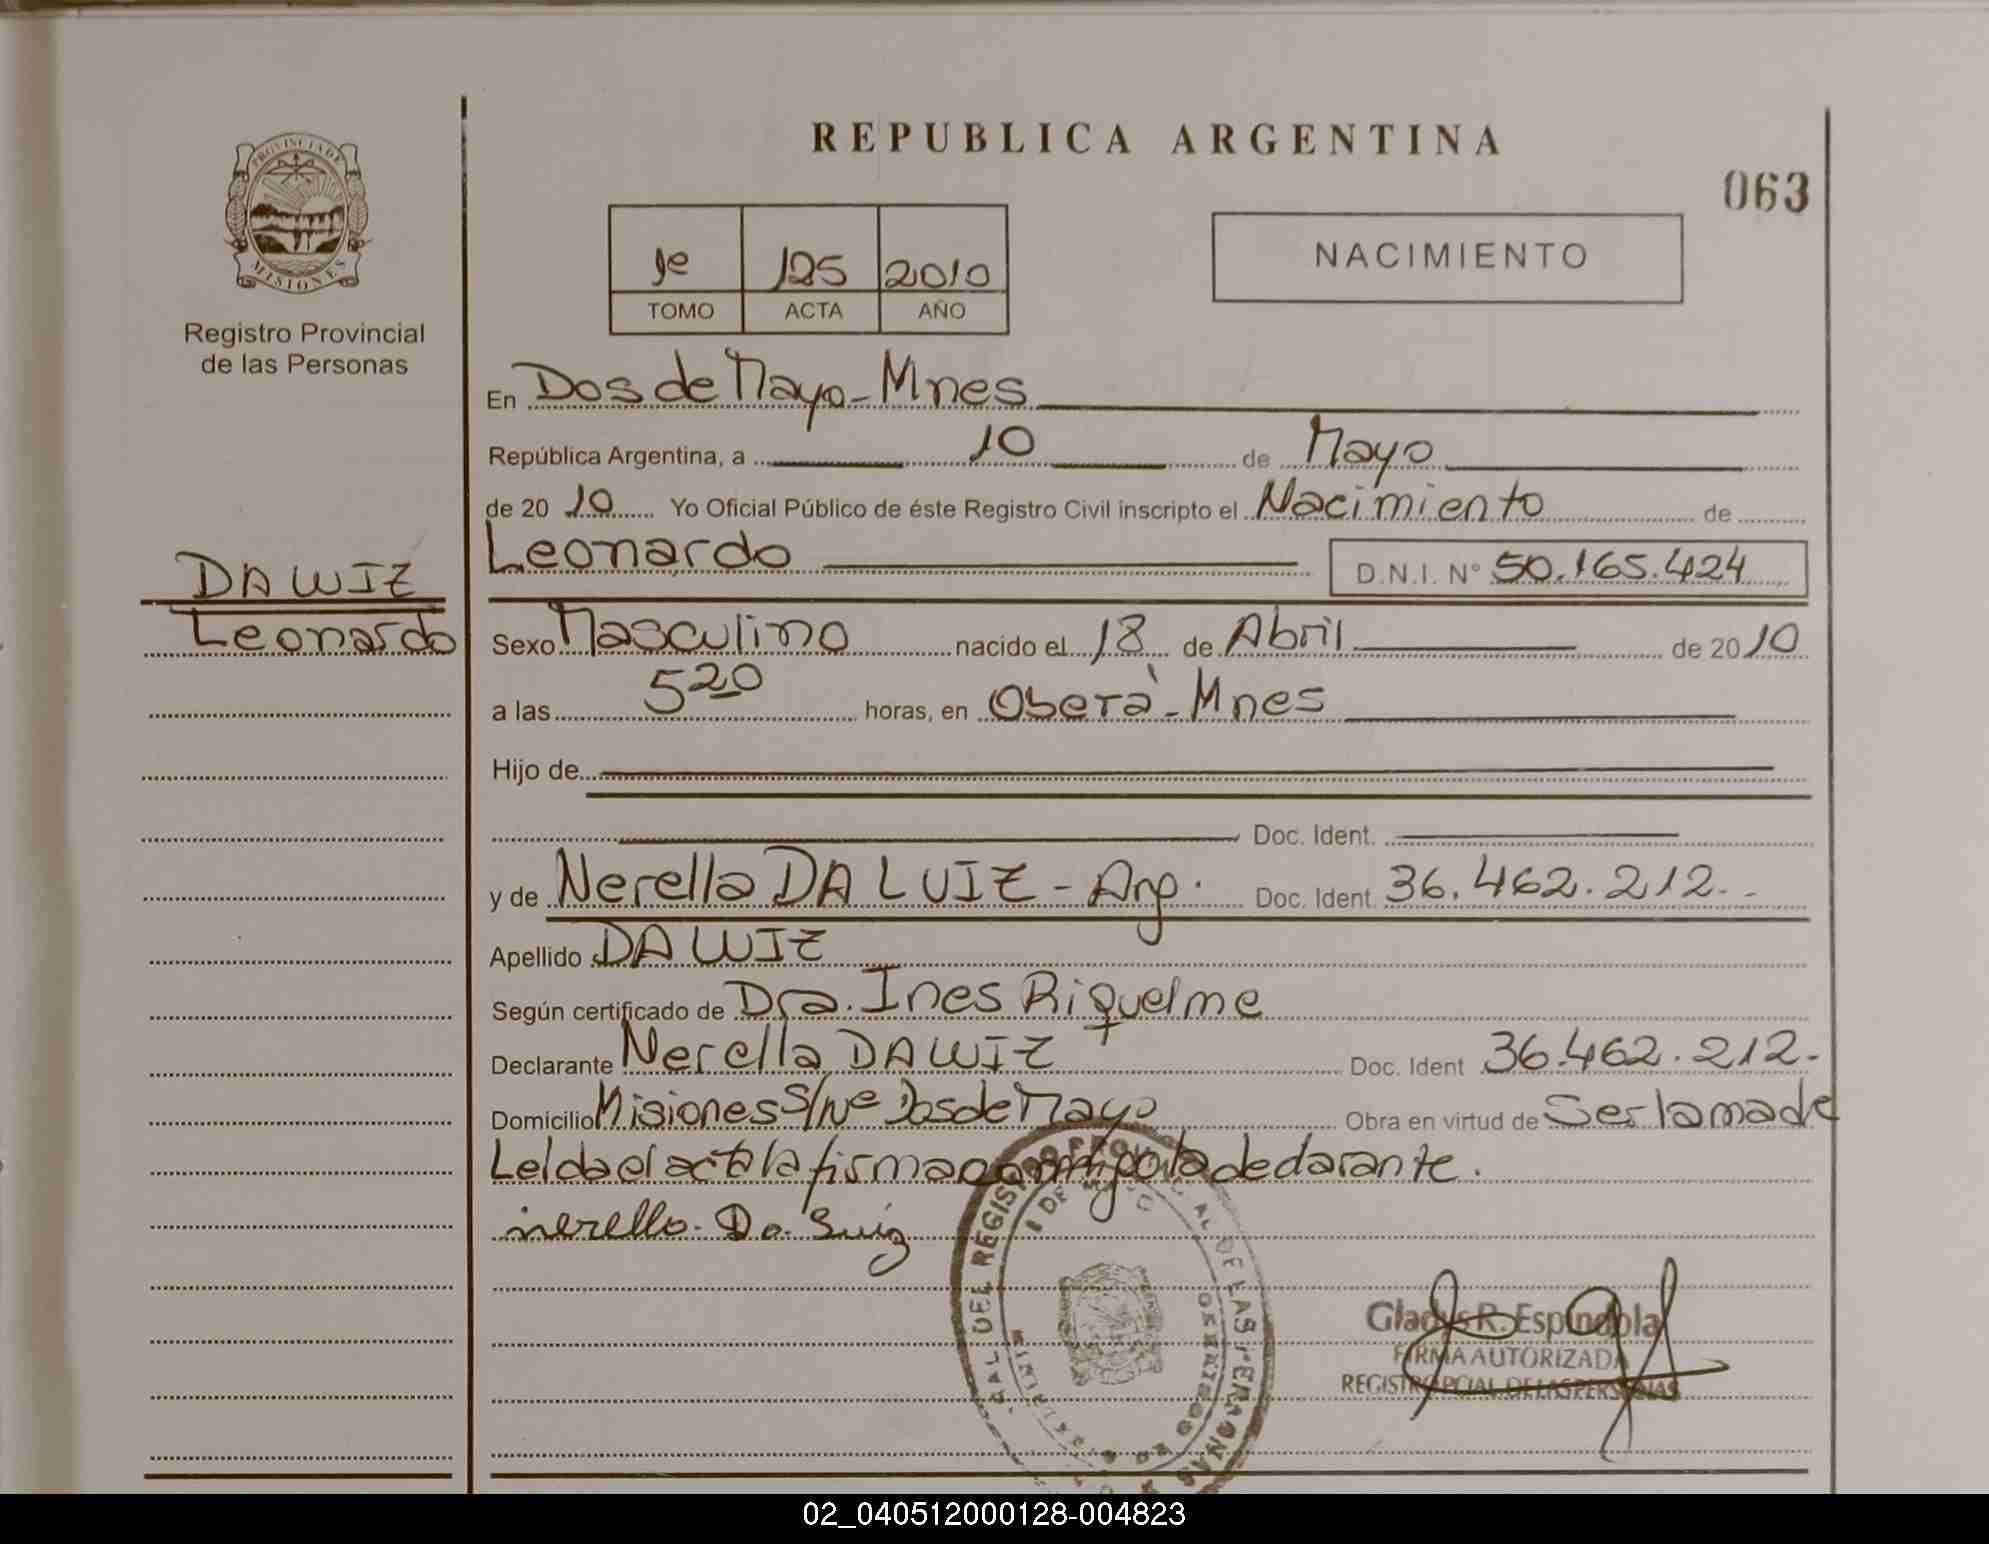 REPUBLICA ARGENTINA
063
PROVINCIA DE
MISIONES
Registro Provincial
de las Personas
1º 125 2010
TOMO ACTA AÑO
NACIMIENTO
En Dos de Mayo - Mnes
República Argentina, a 10 de Mayo
de 20 10 Yo Oficial Público de éste Registro Civil inscripto el Nacimiento de
Leonardo D.N.I. Nº 50.165.424
DA LUIZ
Leonardo
Sexo Masculino nacido el 18 de Abril de 20 10
a las 5 20 horas, en Oberá - Mnes
Hijo de
Doc. Ident.
y de Nerella DA LUIZ - Arg. Doc. Ident. 36.462.212.-
Apellido DA LUIZ
Según certificado de Dra. Ines Riquelme
Declarante Nerella DA LUIZ Doc. Ident 36.462.212.-
Domicilio Misiones S/Nº Dos de Mayo Obra en virtud de Ser la madre
Leída el acta la firma conmigo la declarante.
nerella. Da. Luiz
Gladys R. Espindola
FIRMA AUTORIZADA
REGISTRO PCIAL. DE LAS PERSONAS
02_040512000128-004823